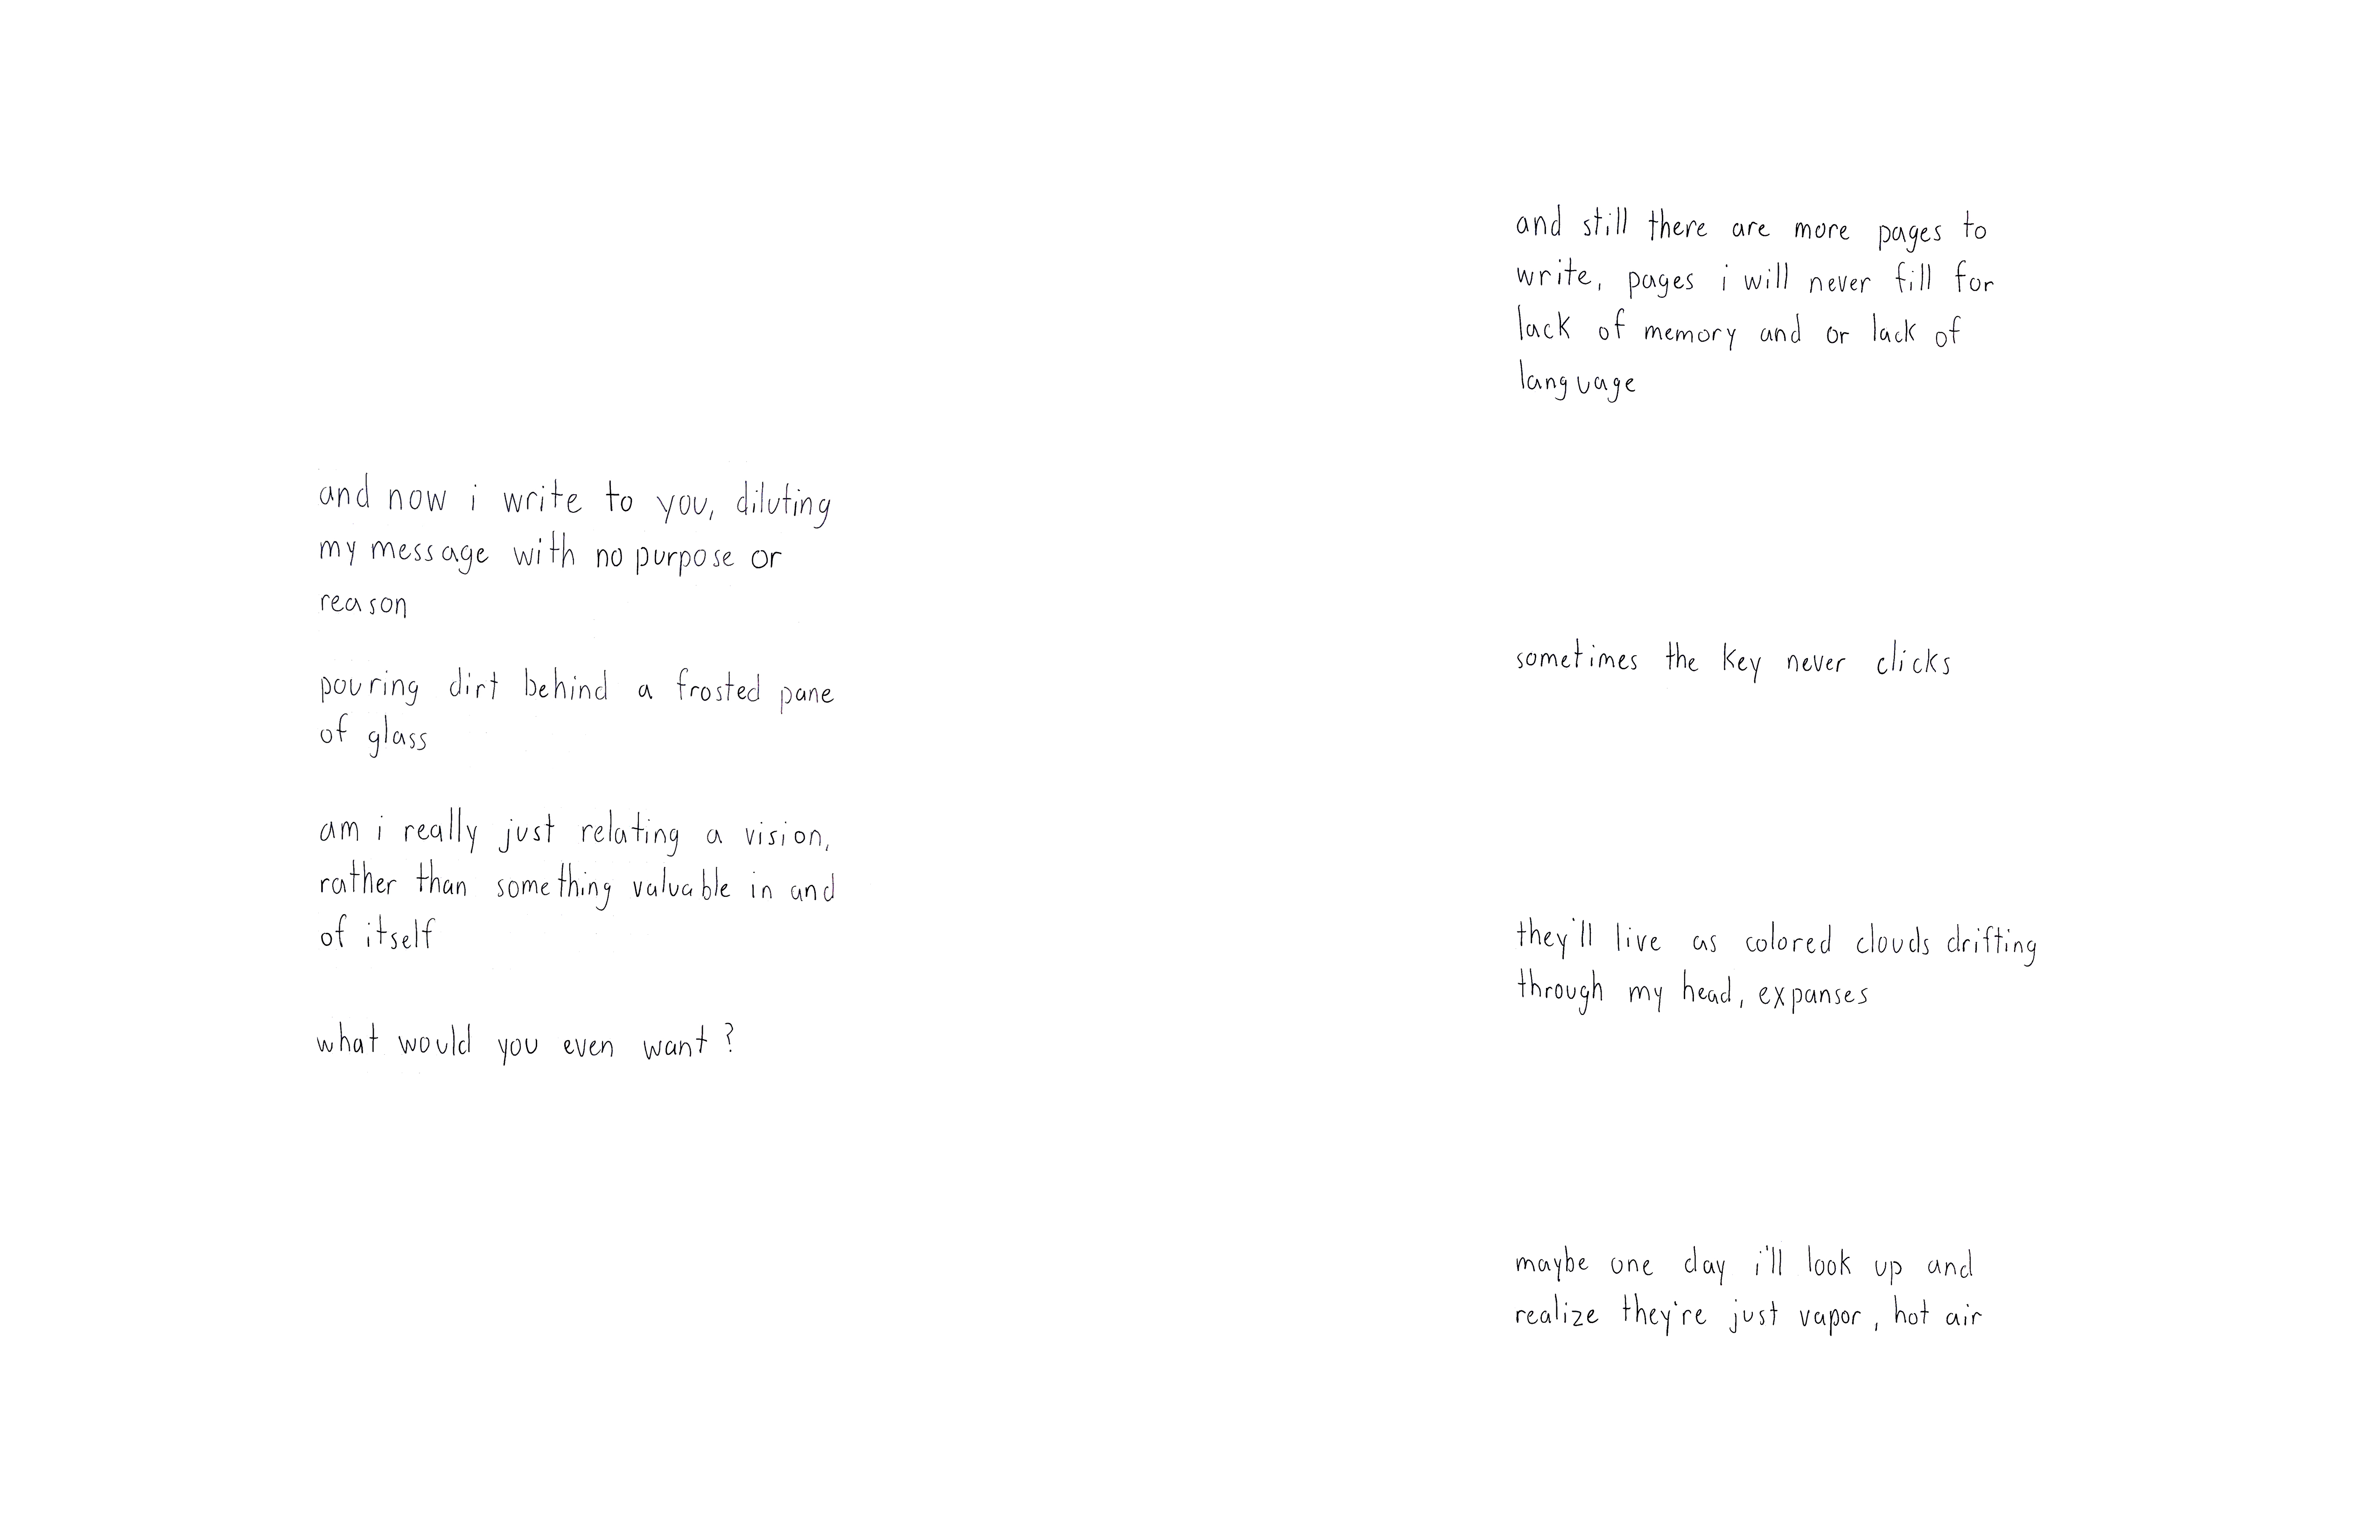 and now i write to you, diluting
my message with no purpose or
reason
pouring dirt behind a frosted pane
of glass
am i really just relating a vision,
rather than something valuable in and
of itself
what would you even want?
and still there are more pages to
write, pages i will never fill for
lack of memory and or lack of
language
sometimes the key never clicks
they'll live as colored clouds drifting
through my head, expanses
maybe one day i'll look up and
realize they're just vapor, hot air